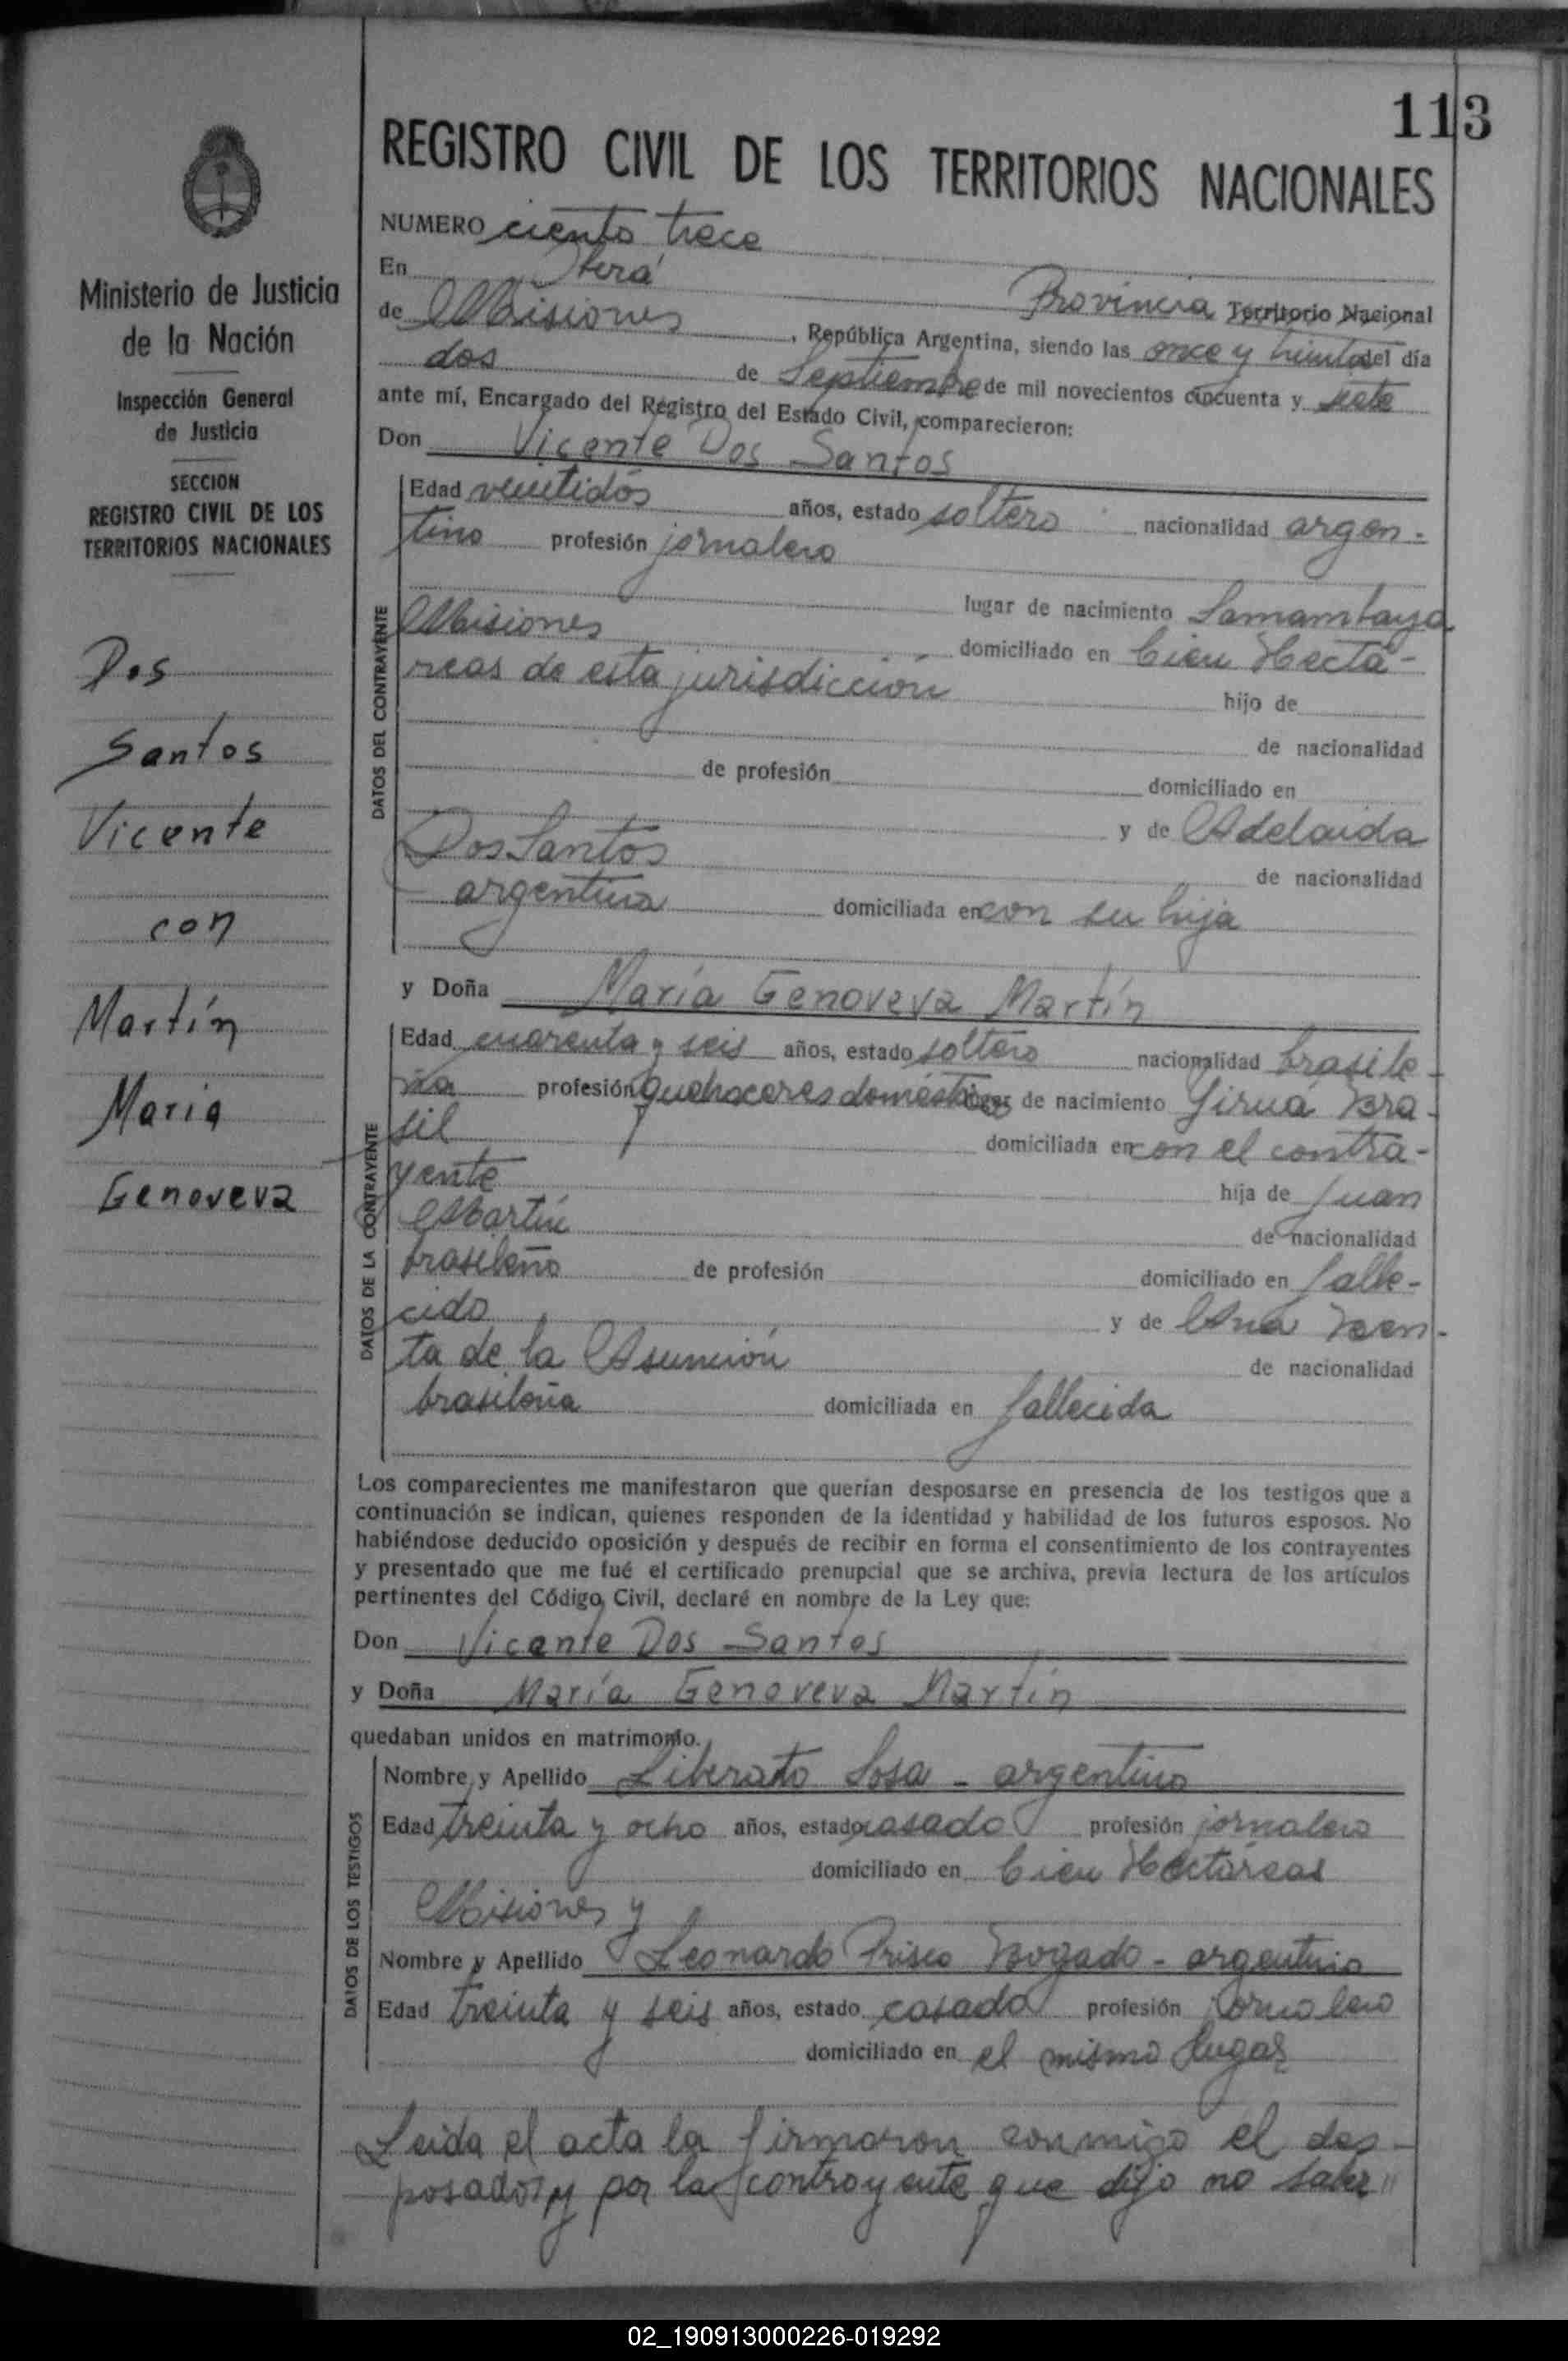 113
REGISTRO CIVIL DE LOS TERRITORIOS NACIONALES
Ministerio de Justicia
de la Nación
Inspección General
de Justicia
SECCION
REGISTRO CIVIL DE LOS
TERRITORIOS NACIONALES
Dos
Santos
Vicente
con
Martín
María
Genoveva
NUMERO ciento trece
En Oberá
Provincia Territorio Nacional
de Misiones, República Argentina, siendo las once y treinta del día
dos de Septiembre de mil novecientos cincuenta y siete
ante mí, Encargado del Registro del Estado Civil, comparecieron:
Don Vicente Dos Santos
DATOS DEL CONTRAYENTE
Edad veintidós años, estado soltero nacionalidad argen-
tino profesión jornalero
lugar de nacimiento Samambaya
Misiones domiciliado en Cien Hectá-
reas de esta jurisdicción hijo de
de nacionalidad
de profesión domiciliado en
y de Adelaida
Dos Santos de nacionalidad
argentina domiciliada en con su hija
y Doña María Genoveva Martín
DATOS DE LA CONTRAYENTE
Edad cuarenta y seis años, estado soltera nacionalidad brasile-
ña profesión quehaceres domésticos lugar de nacimiento Giruá Bra-
sil domiciliada en con el contra-
yente hija de Juan
Martín de nacionalidad
brasileño de profesión domiciliado en falle-
cido y de Ana
ta de la Asunción de nacionalidad
brasileña domiciliada en fallecida
Los comparecientes me manifestaron que querían desposarse en presencia de los testigos que a
continuación se indican, quienes responden de la identidad y habilidad de los futuros esposos. No
habiéndose deducido oposición y después de recibir en forma el consentimiento de los contrayentes
y presentado que me fué el certificado prenupcial que se archiva, previa lectura de los artículos
pertinentes del Código Civil, declaré en nombre de la Ley que:
Don Vicente Dos Santos
y Doña María Genoveva Martín
quedaban unidos en matrimonio.
DATOS DE LOS TESTIGOS
Nombre y Apellido Liberato Sosa - argentino
Edad treinta y ocho años, estado casado profesión jornalero
domiciliado en Cien Hectáreas
Misiones y
Nombre y Apellido Leonardo Prisco Bogado - argentino
Edad treinta y seis años, estado casado profesión jornalero
domiciliado en el mismo lugar
Leida el acta la firmaron conmigo el des-
posado, y por la contrayente que dijo no saber"
02_190913000226-019292